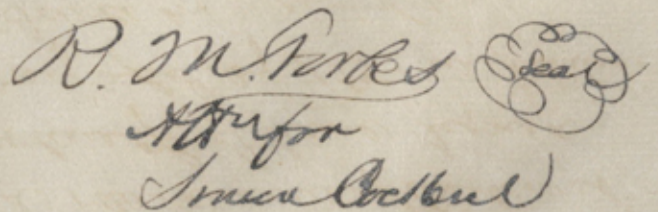 R. M. Forbes Seal
Atty for
Cockbul